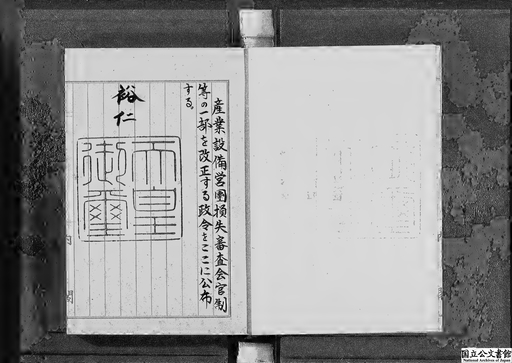 産業設備営團損失審査会官制
等の一部を改正する政令をここに公布
する。
裕仁
天皇
御璽
国立公文書館
National Archives of Japan